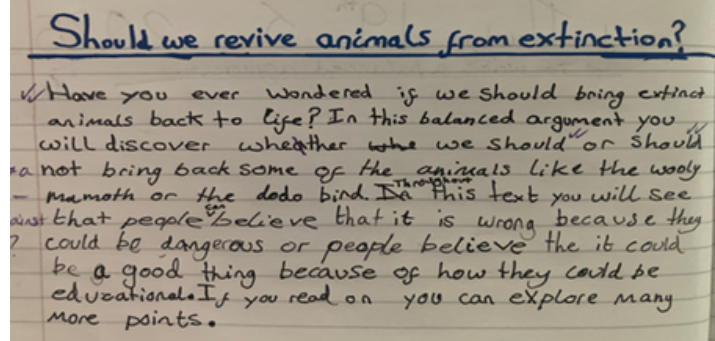 Should we revive animals from extinction?
Have you ever wondered if we should bring extinct
animals back to life? In this balanced argument you
will discover whether we should or should
not bring back some of the animals like the wooly
mamoth or the dodo bird. Throughout this text you will see
that people can believe that it is wrong because they
could be dangerous or people believe the it could
be a good thing because of how they could be
educational. If you read on you can explore many
more points.